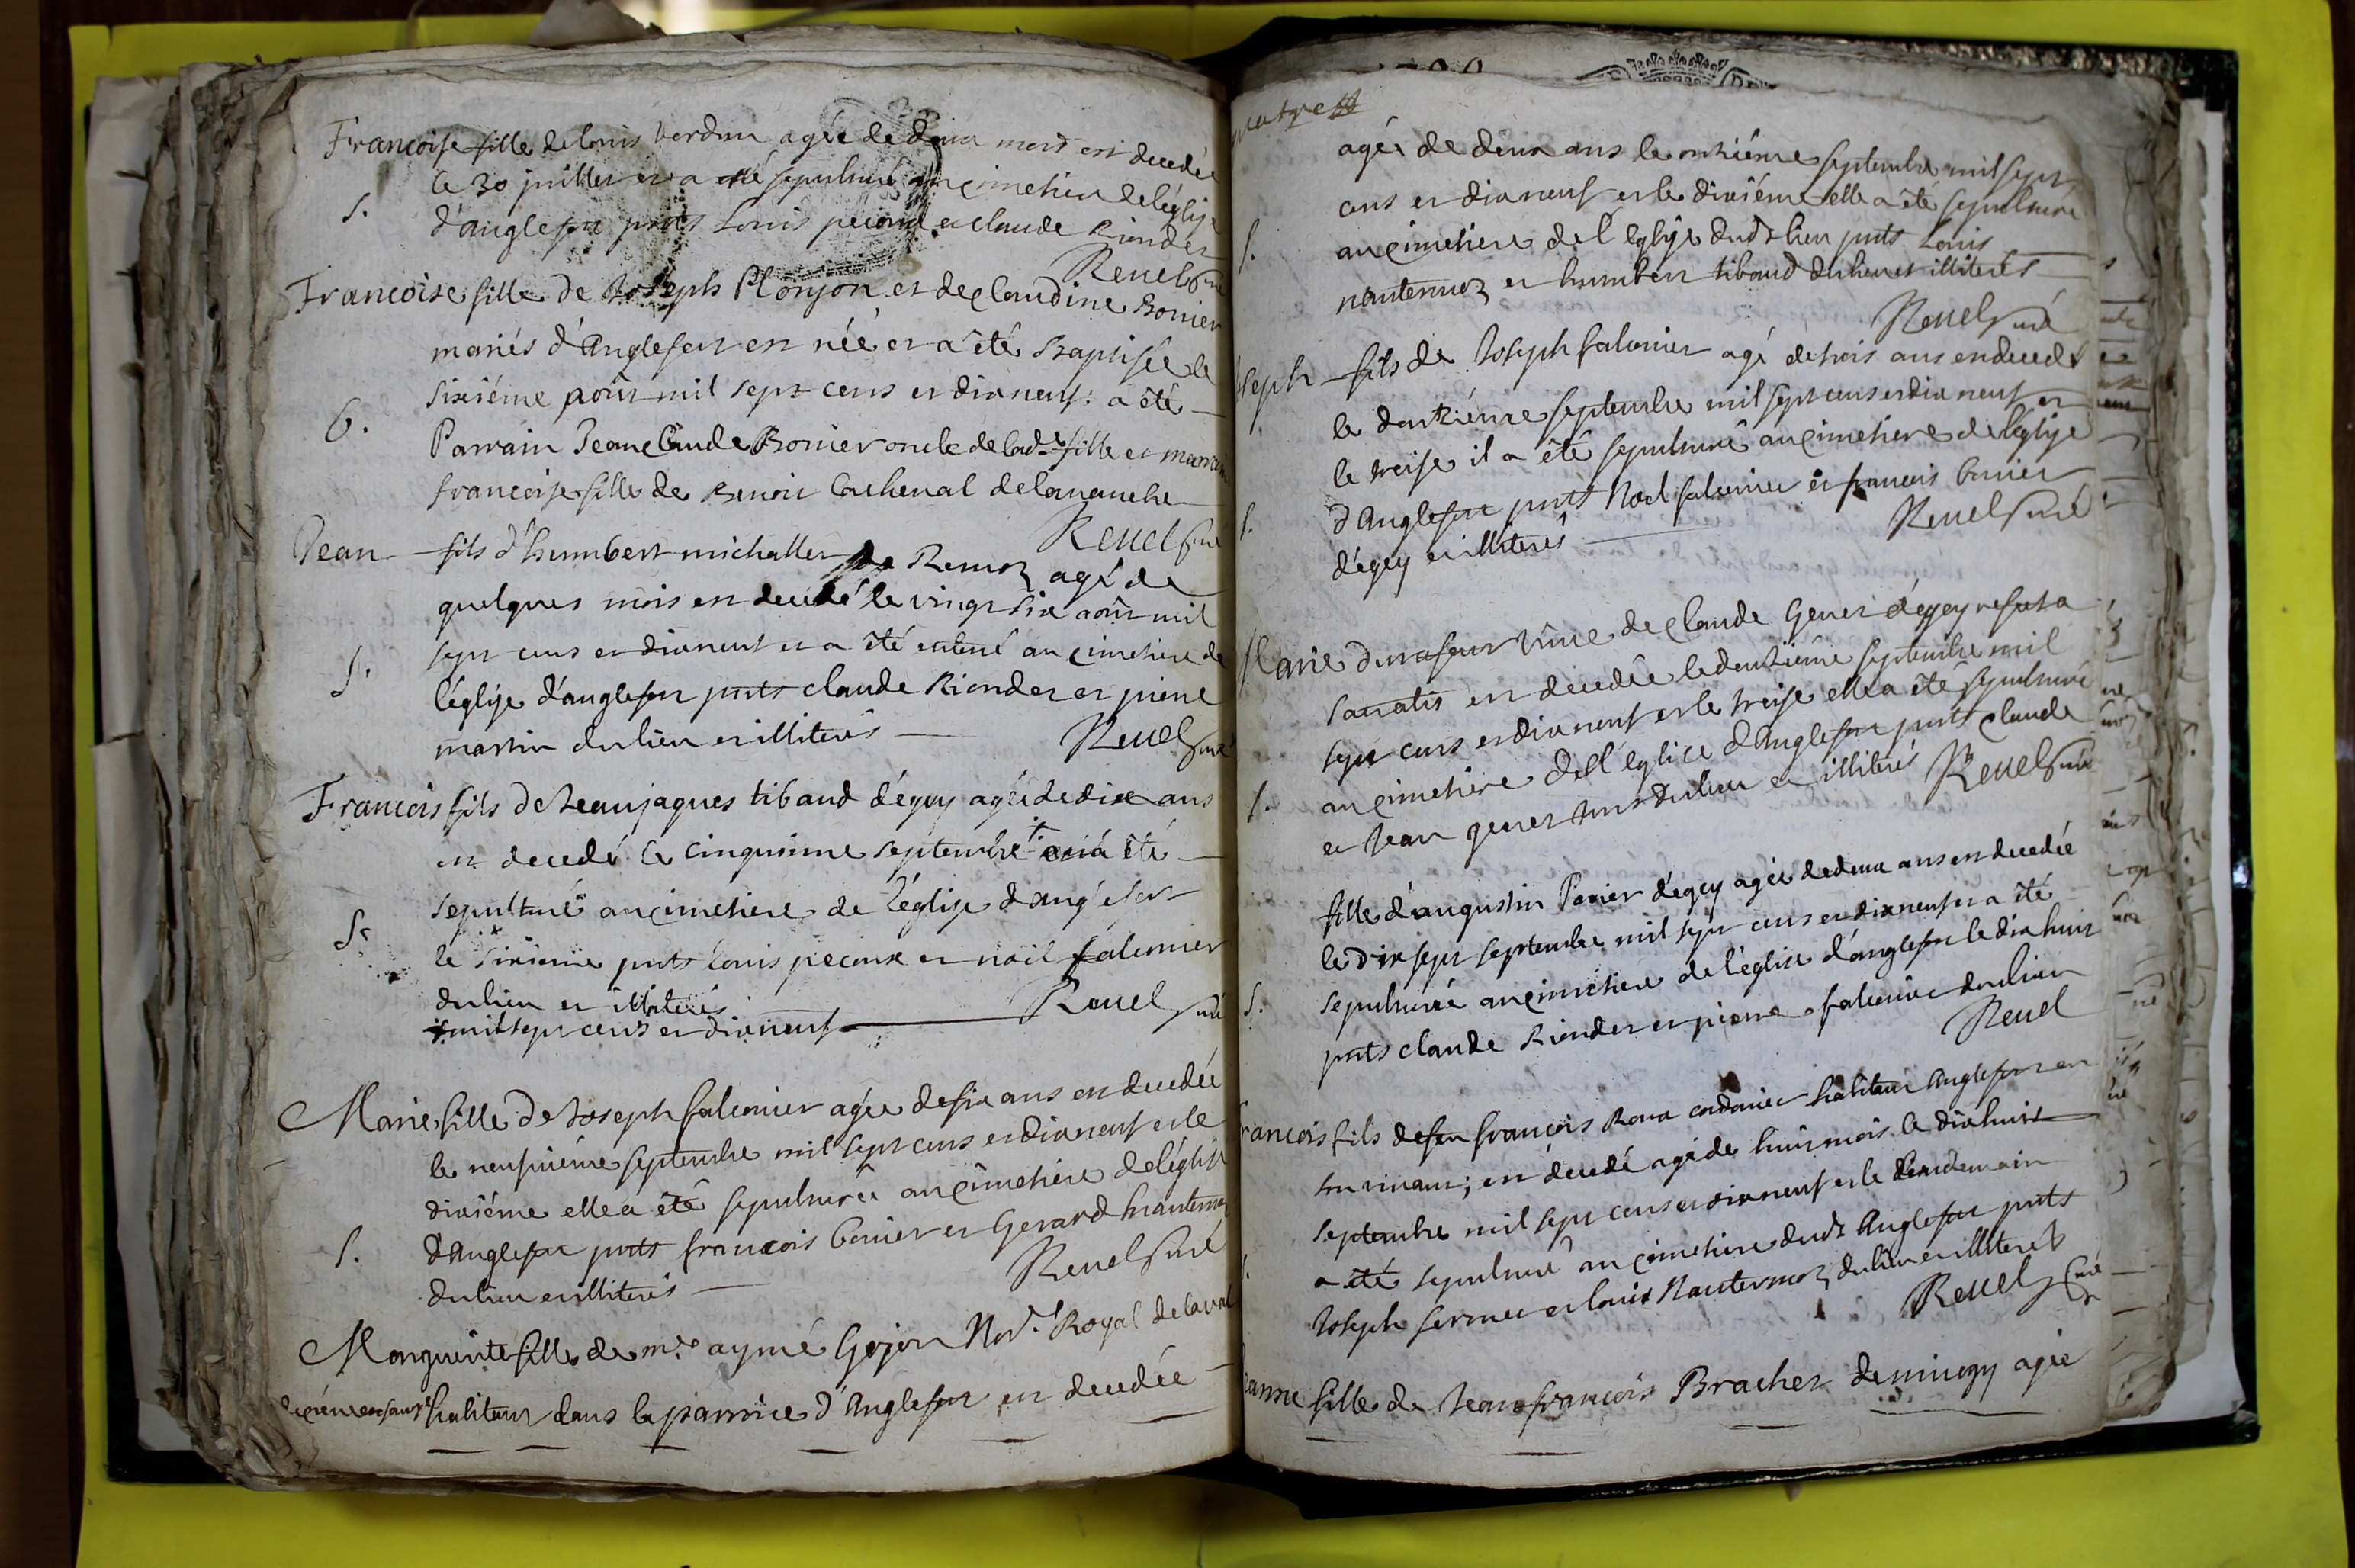 Francoise fille de louis verdun agée de deux mois est decedée
le 30 juillet et a eté sepulturé au cimetiere de léglise
S. d'anglefort pnts Louis pecoux et claude Riondet
Reuel curé
Francoise fille de Joseph Plonjon et de claudine Bonier
mariés d'Anglefort est néé et a été baptisée le
sixiéme aoûst mil sept cens et dixneuf: a été
B. Parrain Jean claude Bonier oncle de lade fille et marraine
francoise fille de Benoit Cachenal
Reuel curé
Jean fils d'humbert michallet de Remoz agé de
quelques mois est decedé le vingt six aoûst mil
sept cens et dixneuf et a été enterré au cimetiere de
S. léglise d'anglefort pnts claude Riondet et pierre
martin du lieu et illiterés
Reuel curé
Francois fils de Jean jaques tibaud d'égey agé de dix ans
est decedé le cinquiéme septembre + et a été
sepulturé au cimetiere de l'église d'anglefort
S. le sixiéme pnts louis pecoux et noël falconier
du lieu et illiterés
+ mil sept cens et dixneuf
Reuel curé
Marie fille de Joseph falconier agée de six ans est decedée
le neufviéme septembre mil sept cens et dixneuf et le
dixiéme elle a été sepulturée au cimetiere de léglise
S. d'Anglefort pnts francois bonier et Gerard Nantermoz
du lieu et illiterés
Reuel curé
Marguerite fille de mre aymé Gojon Nore Royal
habitant dans la parroice d'Anglefort est decedée
agée de deux ans le onziéme septembre mil sept
cens et dixneuf et le dixiéme elle a été sepulturé
S. au cimetiere de l'église dudt lieu pnts Louis
nantermoz et humbert tibaud du lieu et illiterés
Reuel curé
Joseph fils de Joseph falconier agé de trois ans est decedé
le douziéme septembre mil sept cens et dix neuf et
le treise il a été sepulturé au cimetiere de léglise
S. d'Anglefort pnts Noel falconier et francois bonier
d'égey et illiterés
Reuel curé
Marie veuve de claude Genet d'égey
est decedée le douziéme septembre mil
sept cens et dixneuf et le treise elle a été sepulturé
S. au cimetiere de l'église d'Anglefort pnts claude
et Jean genet tous du lieu et illiterés Reuel curé
fille d'augustin d'égey agée de deux ans est decedée
le dix sept septembre mil sept cens et dixneuf et a été
S. sepulturée au cimetiere de l'église d'anglefort le dix huit
pnts claude Riondet et pierre falconier du lieu
Reuel
francois fils de feu francois Roux cordonier habitant Anglefort en
son vivant; est decedé agé de huit mois le dixhuit
septembre mil sept cens et dixneuf et le lendemain
S. a été sepulturé au cimetiere dudt Anglefort pnts
Joseph et louis Nantermoz du lieu et illiterés
Reuel curé
Jeanne fille de Jean francois Brachet agée